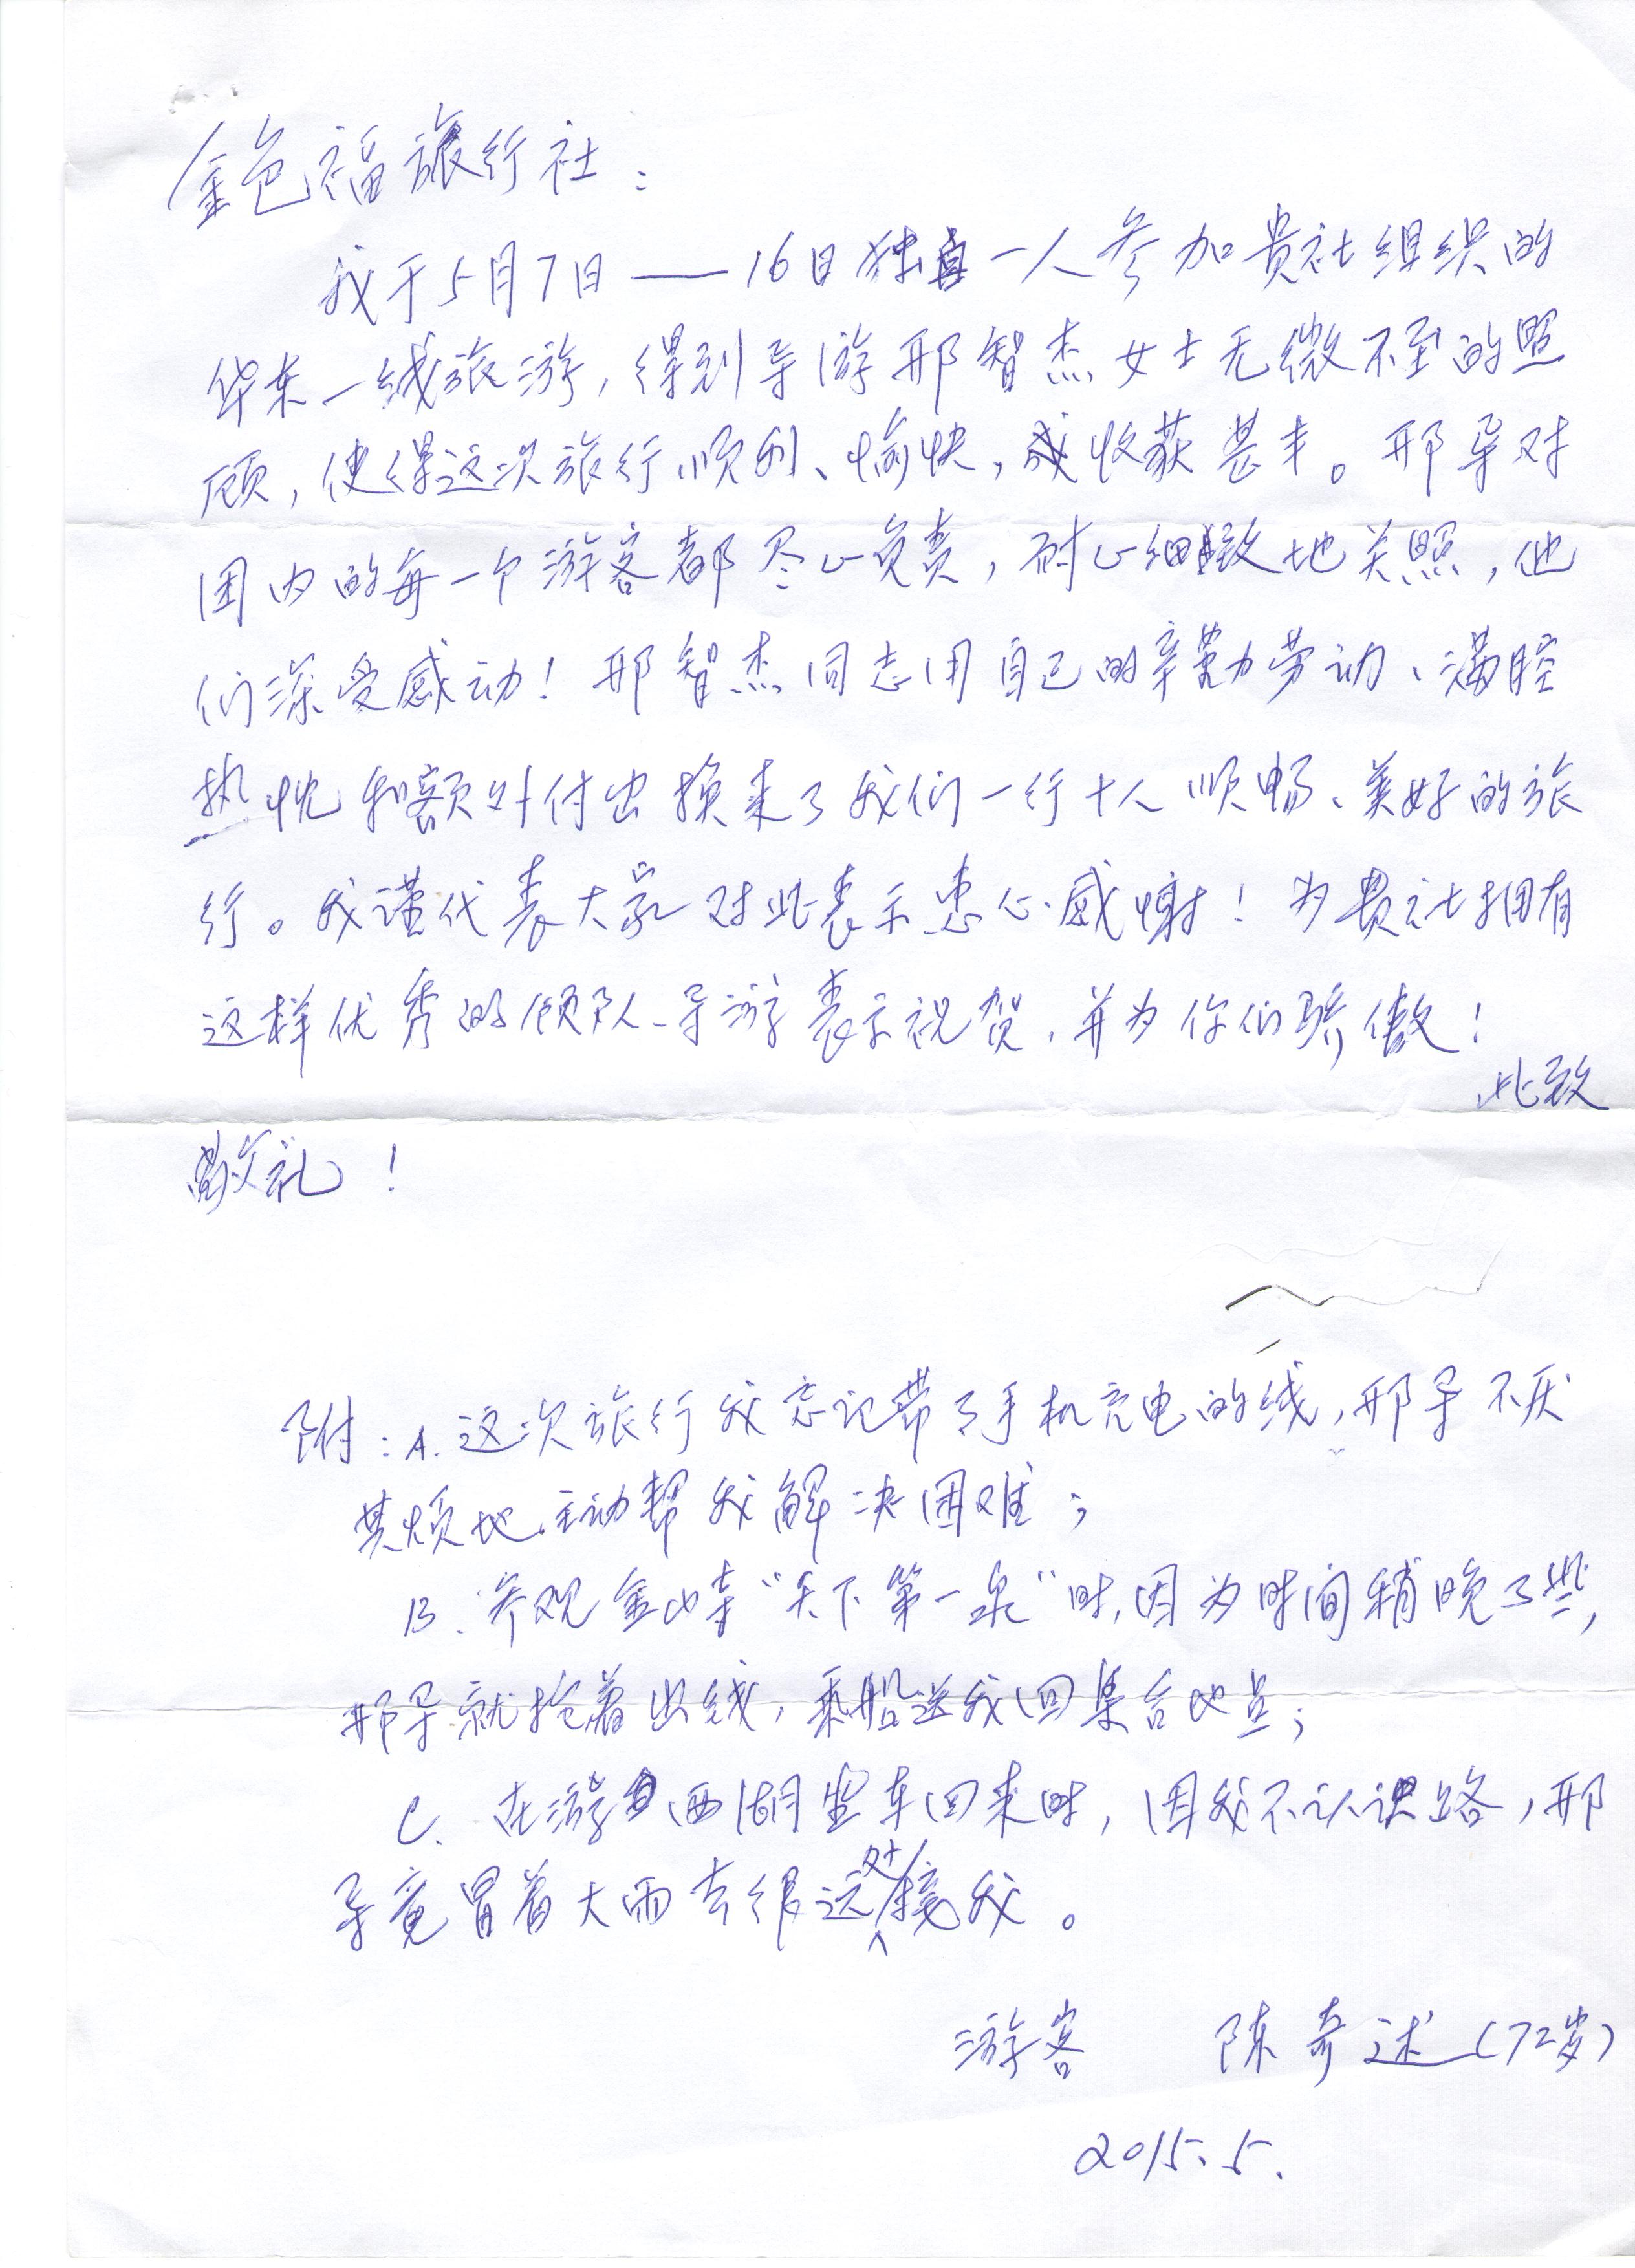 金色福旅行社：
我于5月7日——16日独自一人参加贵社组织的
华东一线旅游，得到导游邢智杰女士无微不至的照
顾，使得这次旅行顺利、愉快，感收获甚丰。邢导对
团内的每一个游客都尽心负责，耐心细致地关照，他
们深受感动！邢智杰同志用自己的辛勤劳动、满腔
热忱和额外付出换来了我们一行十人顺畅、美好的旅
行。我谨代表大家对此表示忠心感谢！为贵社拥有
这样优秀的领队、导游表示祝贺，并为你们骄傲！
此致
敬礼！
附：A.这次旅行我忘记带了手机充电的线，邢导不厌
其烦地主动帮我解决困难；
B.参观金山寺“天下第一泉”时，因为时间稍晚了些，
邢导就抢着出钱，乘船送我回集合地点；
C.在游西湖坐车回来时，因我不认识路，邢
导竟冒着大雨去很远处接我。
游客 陈奇述（72岁）
2015.5.